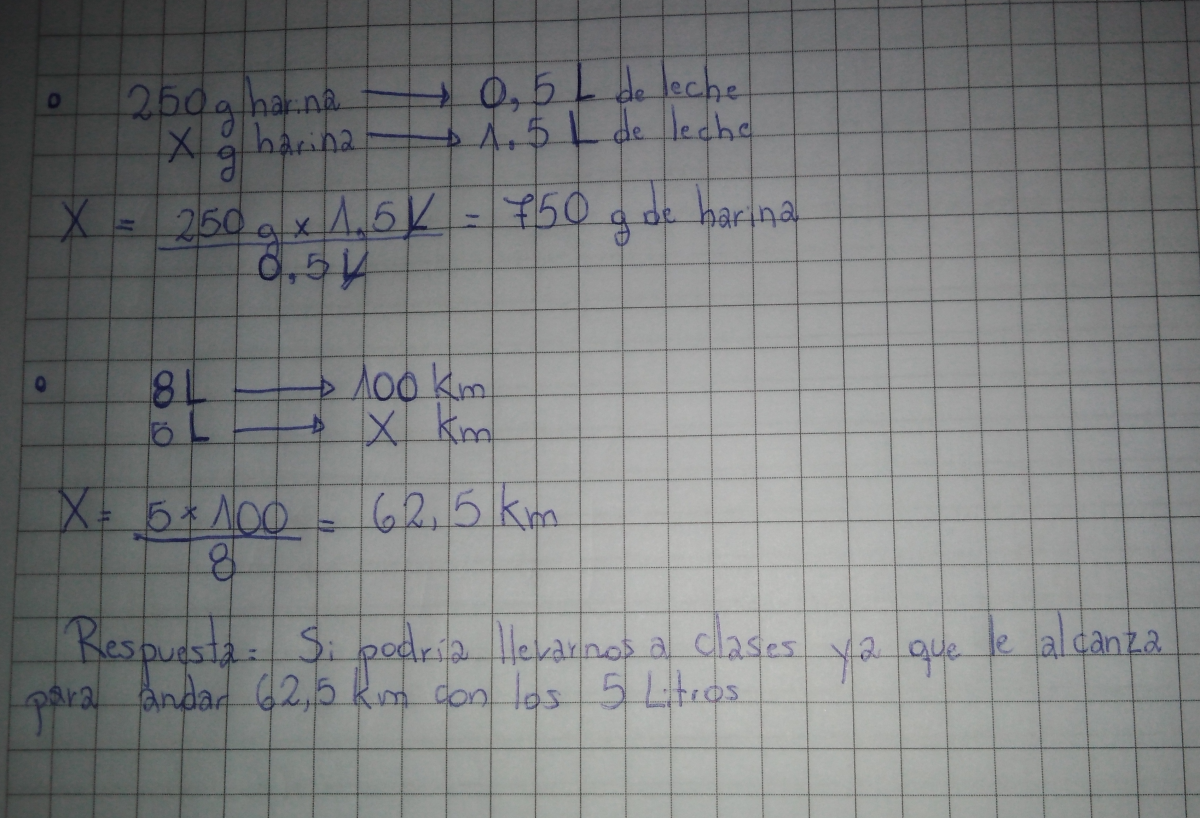 250 g harina → 0,5 L de leche
X g harina → 1,5 L de leche
X = 250 g x 1,5 L = 750 g de harina
0,5 L
8 L → 100 Km
5 L → X Km
X = 5 x 100 = 62,5 Km
8
Respuesta= Si podria llevarnos a clases ya que le alcanza
para andar 62,5 Km con los 5 Litros